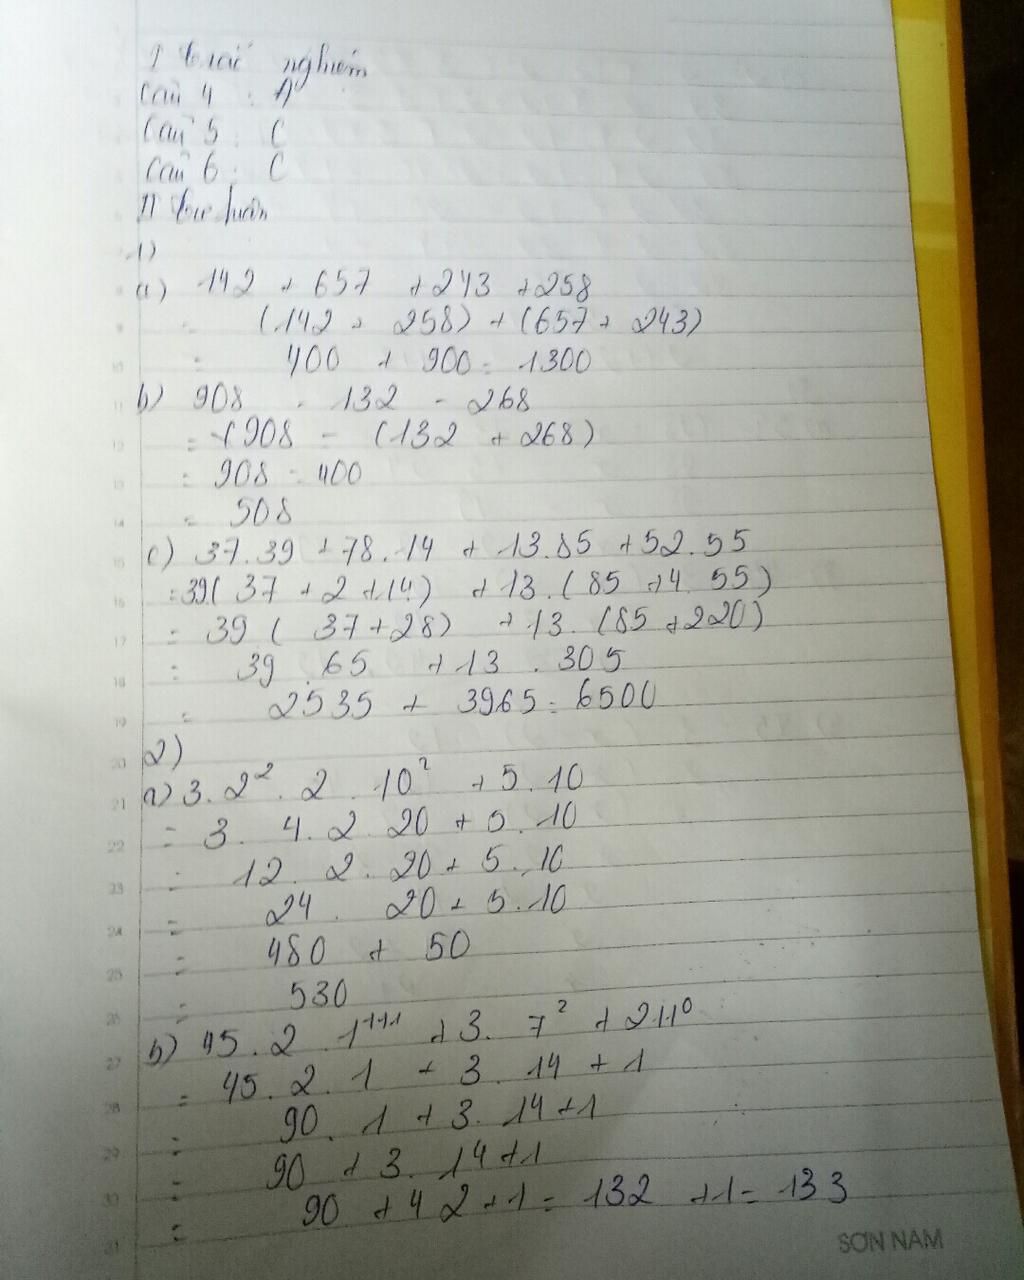 I trắc nghiệm
Câu 4 : A
Câu 5 : C
Câu 6 : C
II tự luận
1)
a) 142 + 657 + 243 + 258
= (142 + 258) + (657 + 243)
= 400 + 900 = 1300
b) 908 - 132 - 268
= (908 - (132 + 268)
= 908 - 400
= 508
c) 37.39 + 78.14 + 13.85 + 52.55
= 39.( 37 + 2 + 14) + 13.(85 + 4.55)
= 39 ( 37 + 28) + 13. (85 + 220)
= 39 . 65 + 13 . 305
= 2535 + 3965 = 6500
2)
a) 3. 2² . 2 . 10² + 5 . 10
= 3. 4. 2. 20 + 5. 10
= 12. 2. 20 + 5. 10
= 24 . 20 + 5. 10
= 480 + 50
= 530
b) 45. 2 . 1¹⁺¹ + 3. 7² + 211⁰
= 45. 2. 1 + 3. 14 + 1
= 90. 1 + 3. 14 + 1
= 90 + 3. 14 + 1
= 90 + 42 + 1 = 132 + 1 = 133
SƠN NAM